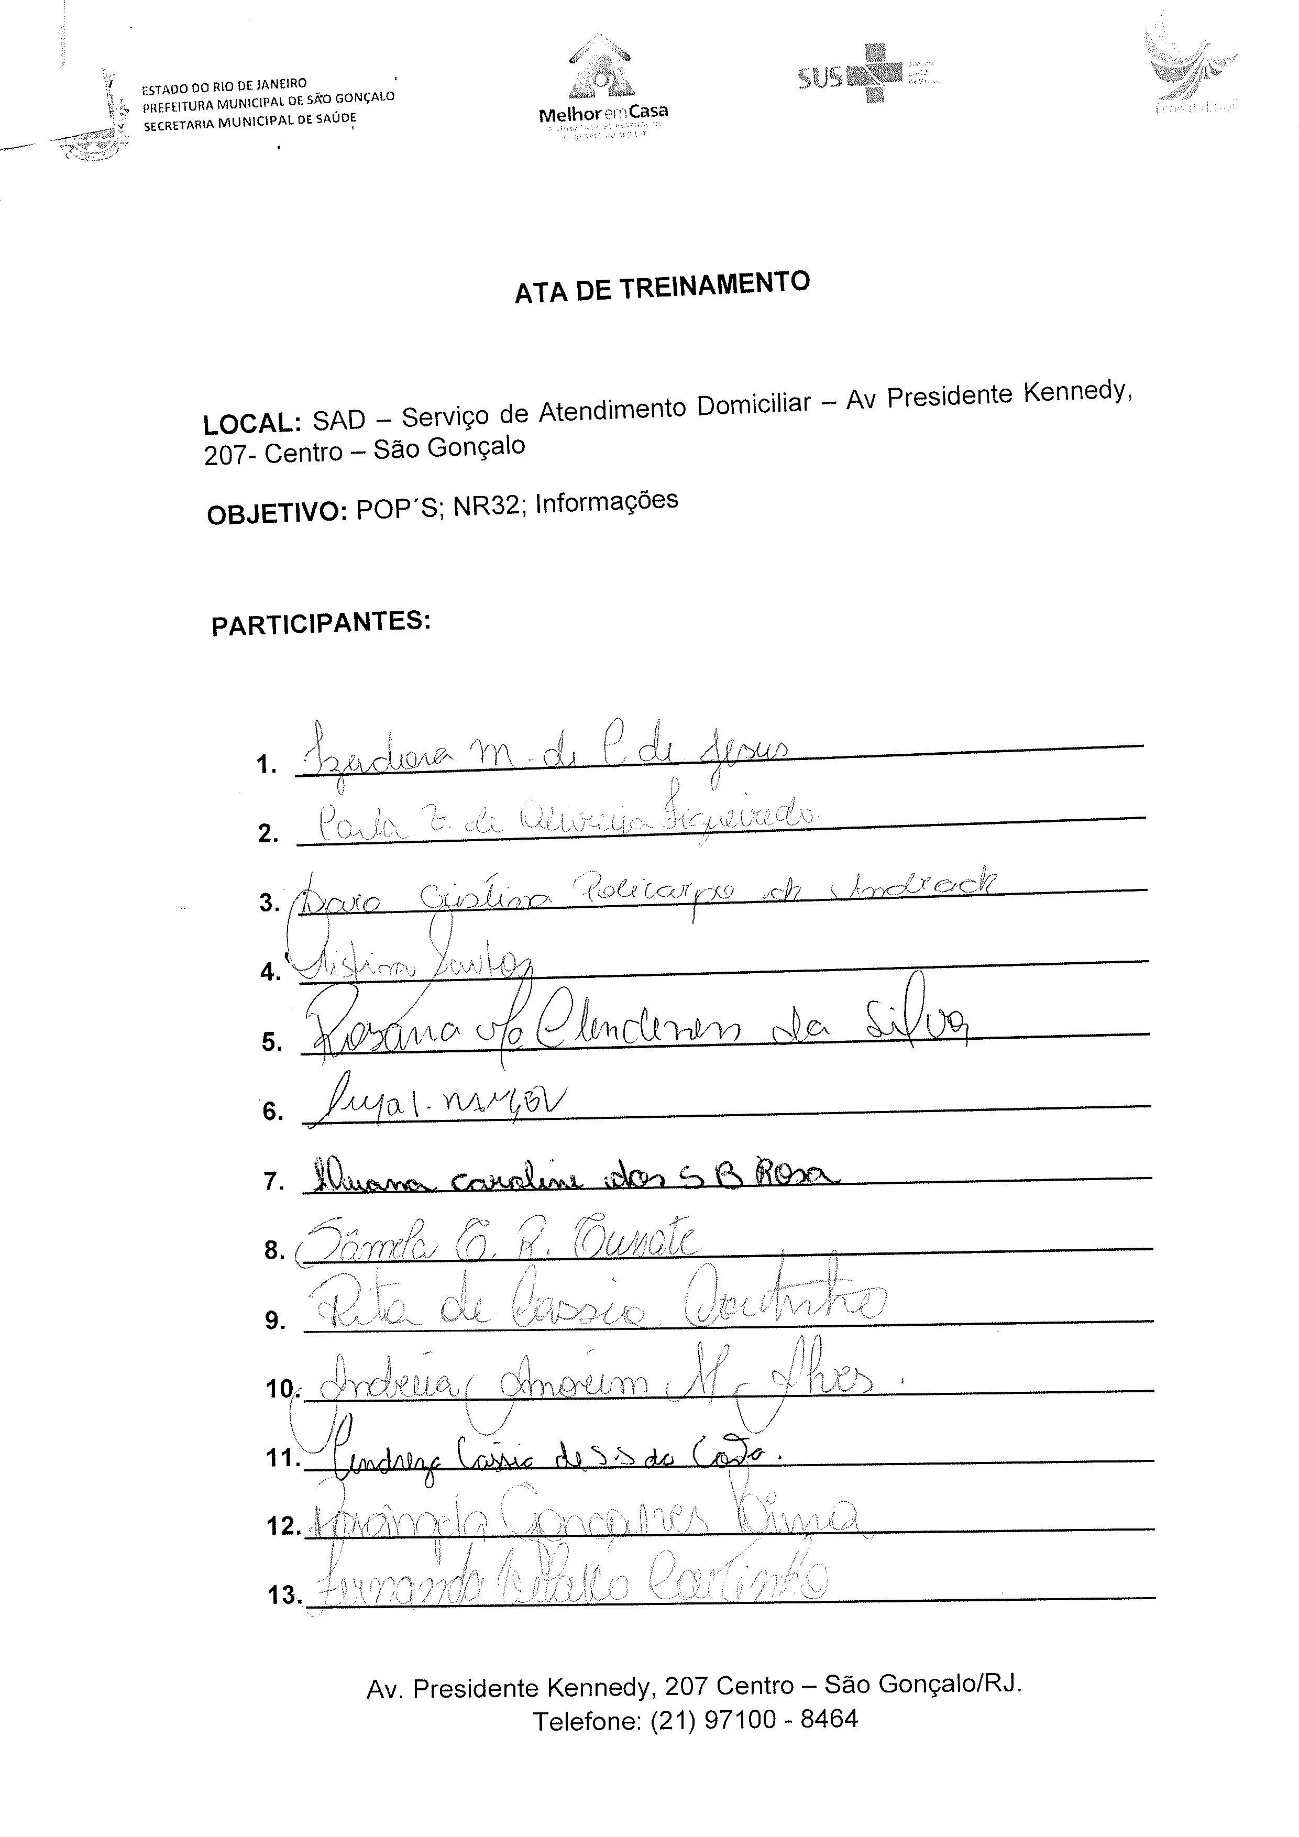 ESTADO DO RIO DE JANEIRO
PREFEITURA MUNICIPAL DE SÃO GONÇALO
SECRETARIA MUNICIPAL DE SAÚDE
MelhoremCasa
SUS
ATA DE TREINAMENTO
LOCAL: SAD – Serviço de Atendimento Domiciliar – Av Presidente Kennedy,
207- Centro – São Gonçalo
OBJETIVO: POP´S; NR32; Informações
PARTICIPANTES:
1. Izadora M. de C de Jesus
2. de Oliveira Figueiredo
3. Cristina Policarpo de Andrade
4. Cristina Santos
5. Rosana da Silva
6.
7. Caroline dos S B Rosa
8. Sâmela C. R.
9. Rita de Cassia Coutinho
10. Andréia Amorim M. Alves.
11. Cassia de S.S da
12. Lima
13. Fernanda
Av. Presidente Kennedy, 207 Centro – São Gonçalo/RJ.
Telefone: (21) 97100 - 8464